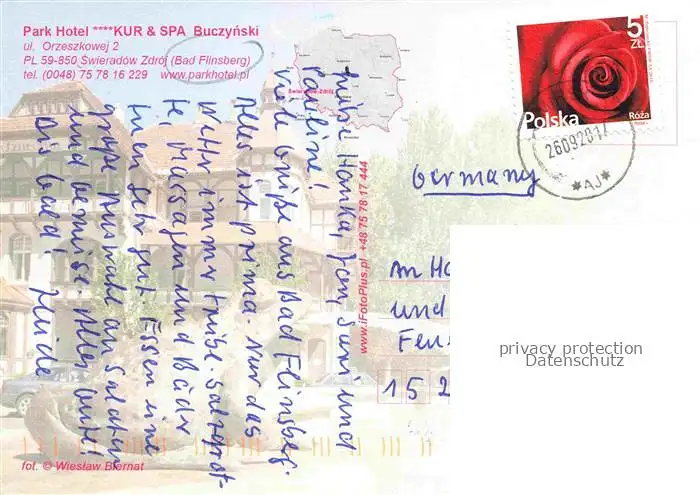 Park Hotel ****KUR & SPA Buczyński
ul. Orzeszkowej 2
PL 59-850 Świeradów Zdrój (Bad Flinsberg)
tel. (0048) 75 78 16 229 www.parkhotel.pl
Świeradów-Zdrój
5
ZŁ
Polska
Róża
26092017
*AJ*
Germany
Hanka, Jens, und
viele Grüße aus Bad Flinsberg.
Alles ist prima. Nur das
Wetter immer trübe. Salzgrot-
te, Massagen und Bäder
tuen sehr gut. Essen eine
große Auswahl an Salaten
und Gemüse. Alles Gute!
Bis bald!
www.iFotoPlus.pl +48 75 78 17 444
An
und
15 2
privacy protection
Datenschutz
fot. © Wiesław Biernat